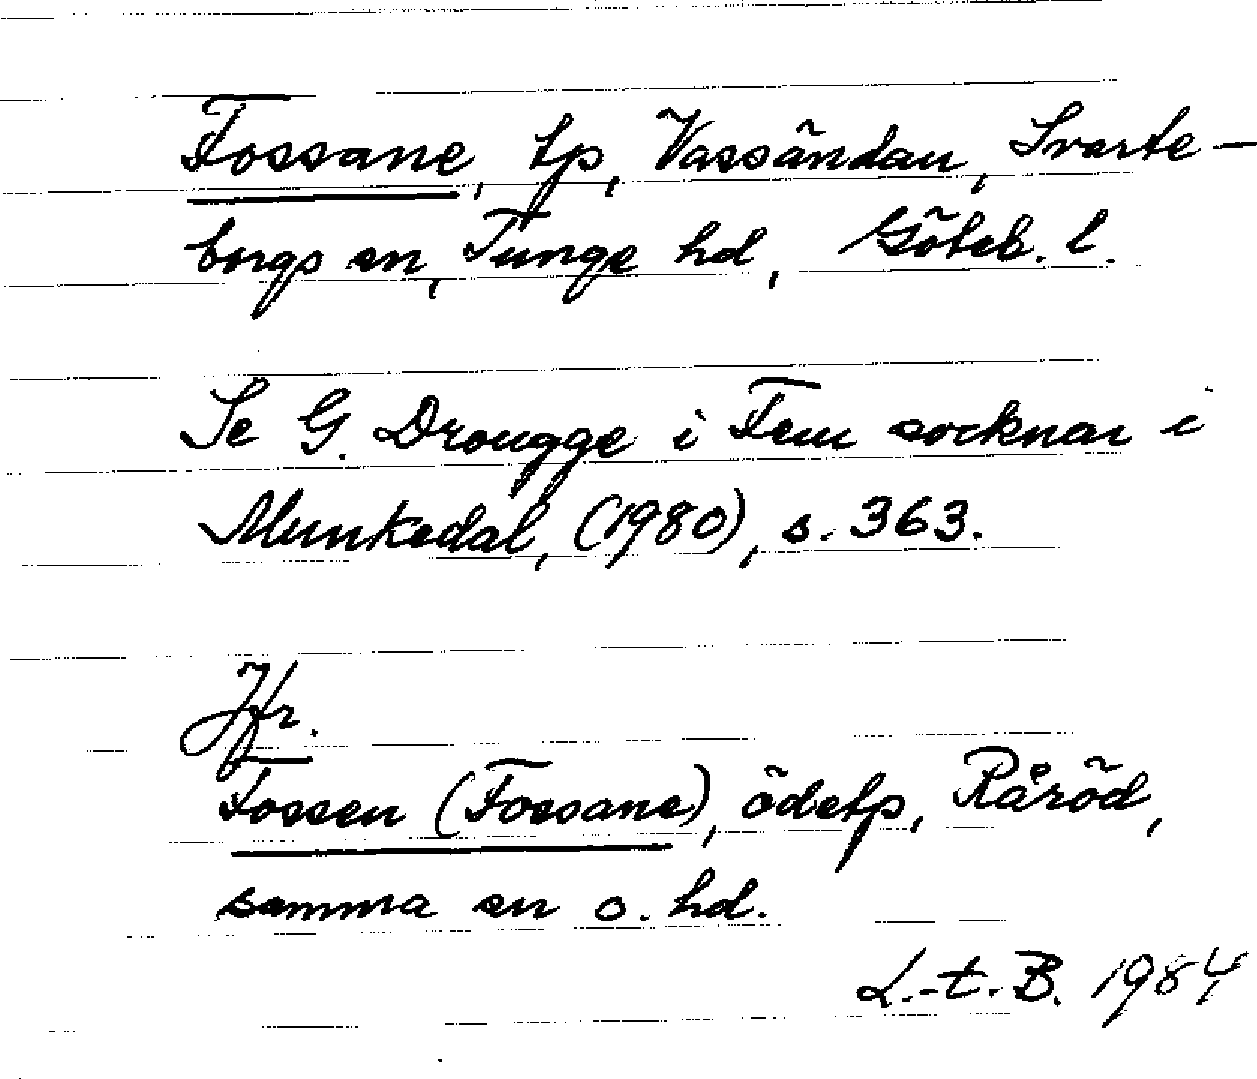 Fossane, tp, Vassändan, Svarte-
borgs sn, Tunge hd, Göteb. l.
Se G. Drougge i Fem socknar i
Munkedal, (1980), s. 363.
Jfr.
Fossen (Fossane), ödetp, Råröd,
samma sn o. hd.
L.-t. B. 1984